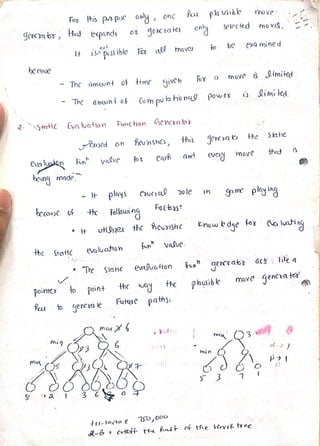 For this purpose only, one has plausible move
generator, that expands or generates only selected moves.
It is not possible for all moves to be examined
because
- The amount of time given for a move is limited
- The amount of computational power is limited.
2. Static Evaluation Function Generator
Based on heuristics, this generates the static
evaluation funⁿ value for each and every move that is
being made.
- It plays crucial role in game playing
because of the following factors
• It utilises the heuristic knowledge for evaluating
the static evaluation funⁿ value.
• The static evaluation funⁿ generator acts like a
pointer to point the way the plausible move generator
has to generate future paths.
max 6
min 3 6
max 5 3 6 7
5 2 1 3 6 0 7
max 3
min
5 3 7 1
tic-tac-toe 350,000
α-β → cutoff the part of the search tree